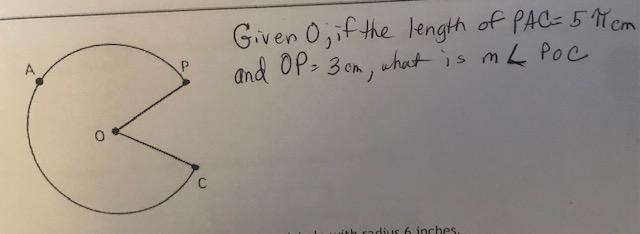 Given O; if the length of PAC = 5 π cm
and OP = 3 cm, what is m∠ POC
A
P
O
C
with radius 6 inches.